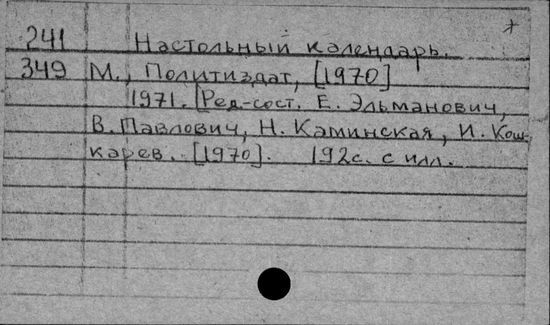 241 Настольный календарь.
349 М., Политиздат, [1970]
1971. [Ред-сост. Е. Эльманович,
В. Павлович, Н. Каминская, И. Кош-
карев. - [1970]. 192с. с илл.